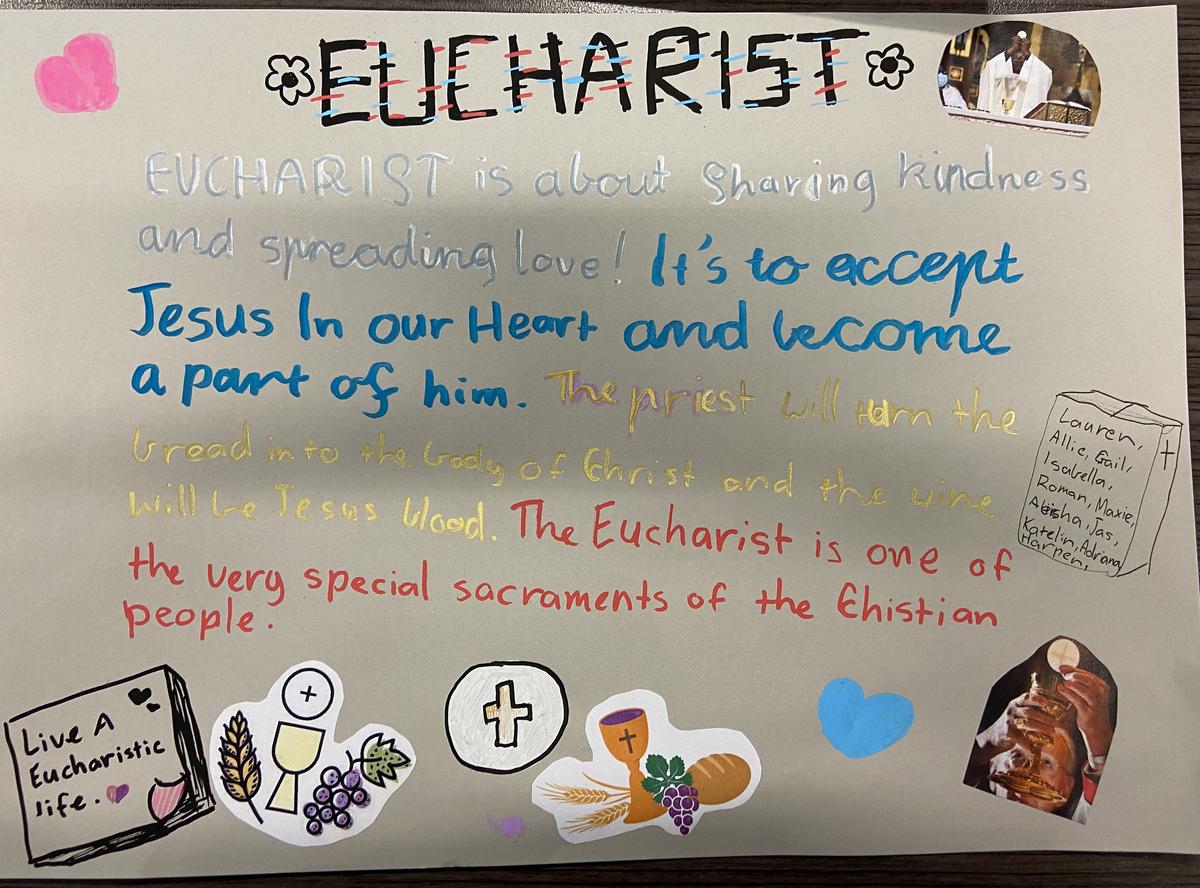 EUCHARIST
EUCHARIST is about Sharing kindness
and spreading love! It's to accept
Jesus In our Heart and become
a part of him. The priest will turn the
bread in to the body of Christ and the wine
will be Jesus blood. The Eucharist is one of
the very special sacraments of the Chistian
people.
Lauren,
Allie, Gail,
Isabella,
Roman, Maxie,
Aisha, Jas,
Katelin, Adriana,
Harper,
Live A
Eucharistic
life.